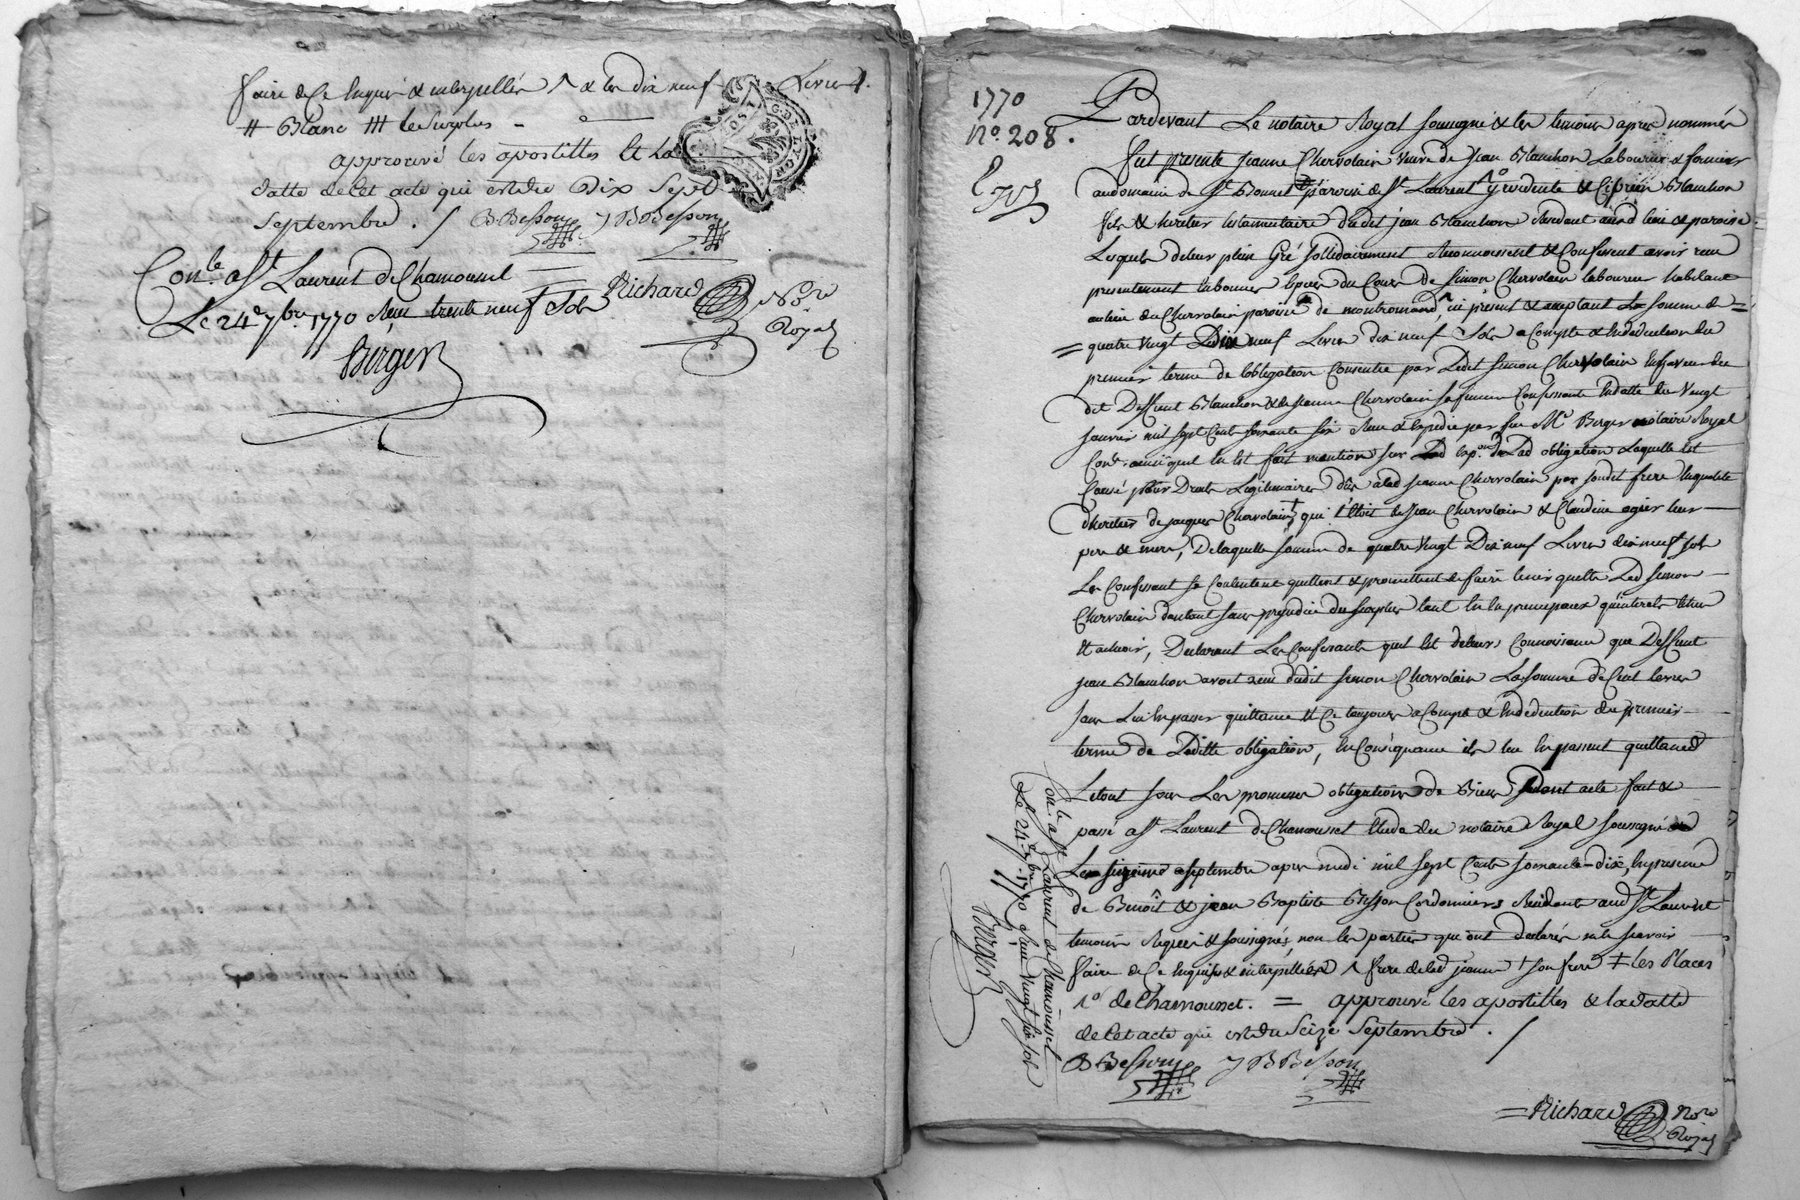 faire de Ce Enquis & interpellés ^ & les dix neuf Livres.
# Blanc ### le Surplus
approuvé les apostilles Et La
datte de Cet acte qui est du Dix Sept
Septembre. / B Besson J B Besson
Con.le a St Laurent de Chamousset
Le 24e 7bre 1770 Reçu trente neuf Sols
Richard No.re
Royal
Berger
1770
No. 208.
Pardevant Le notaire Royal soussigné & les temoins apres nommés
fut presente Jeanne Chervolain veuve de Jean Blanchon Laboureur & fermier
au domaine de St Bonnet paroisse de St Laurent y residente & Ciprien Blanchon
fils & heritier testamentaire dudit jean Blanchon Residant aud lieu & paroisse
Lesquels de leur plein Gré sollidairement Reconnoissent & Confessent avoir reçu
presentement de Simon Chervolain laboureur habitant
au lieu du Chervolain paroisse de montromand ici present & acceptant La somme de
quatre vingt Dix neuf Livres dix neuf Sols a Compte & En deduction du
premier terme de L'obligation Consentie par Ledit Simon Chervolain En faveur du
dit Deffunt Blanchon & de Jeanne Chervolain sa femme Confessante En datte du Vingt
janvier mil sept Cents soixante six Reçue & Expediée par feu Me Berger notaire Royal
Con.le ainsi qu'il En Est fait mention sur Lad Exp.on de Lad obligation Laquelle Est
Causé pour Droits Legitimaires dûs a lad Jeanne Chervolain par sondit frere En qualité
d'heritier de jacques Chervolain qui l'Etoit de Jean Chervolain & Claudine ogier leurs
pere & mere, De laquelle somme de quatre Vingt Dix neuf Livres dix neuf sols
Les Confessants se Contentent quittent & promettent de faire tenir quitte Led Simon
Chervolain d'autant sans prejudice du surplus tant En Principaux qu'interets
Declarant Les Confessants qu'il Est de leurs Connoissance que Deffunt
jean Blanchon avoit reçu dudit Simon Chervolain La Somme de Cent Livres
sans Lui En passer quittance & Ce toujours a Compte & En deduction du premier
terme de Ladite obligation, En Conséquance ils lui En passent quittance
Le tout sous Les promesses obligations de Biens Dont acte fait &
passé a St Laurent de Chamousset Etude du notaire Royal soussigné
Le Septembre apres midi mil Sept Cents Soixante-dix, En presence
de Benoît & jean Baptiste Besson Cordonniers Residants aud St Laurent
temoins Requis & soussignés, non les parties qui ont declarés ne le sçavoir
faire de Ce Enquises & interpellées ^ frere de lad jeanne † son frere ‡ les Places
1o de Chamousset. = approuvé les apostilles & la datte
de Cet acte qui est du Seize Septembre. /
B Besson J B Besson
Richard No.re
Royal
Con.le a St Laurent de Chamousset
Le 24e 7bre 1770 Reçu Vingt six sols
Berger